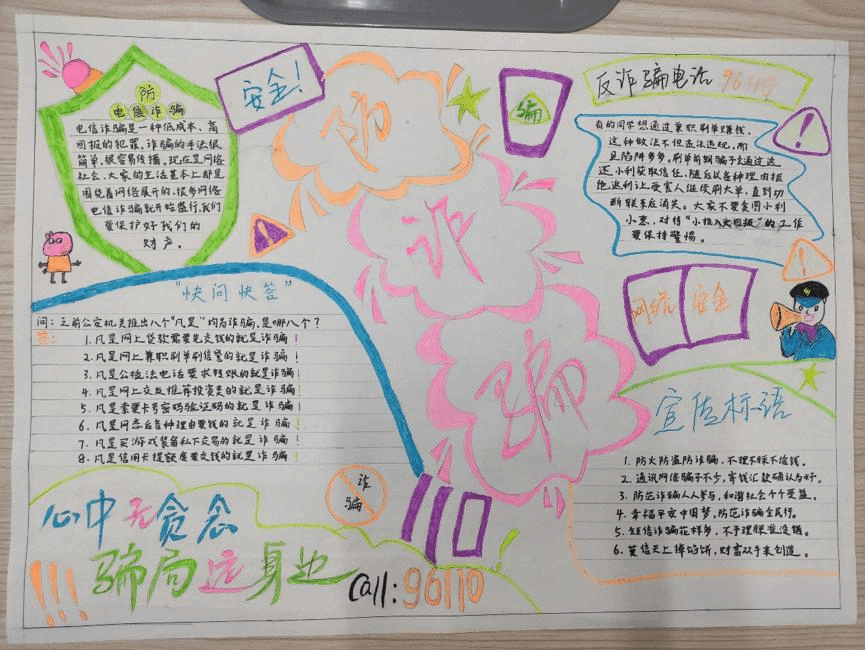 防
电信诈骗
电信诈骗是一种低成本、高
回报的犯罪,诈骗的手法很
简单,很容易传播,现在是网络
社会,大家的生活基本上都是
围绕着网络展开的,很多网络
电信诈骗就开始盛行,我们
要保护好我们的
财产。
安全!
防
诈
骗
骗
反诈骗电话 96110
有的同学想通过兼职刷单赚钱,
这种做法不但违法违规,而
且陷阱多多,刷单前期骗子会通过返
还小利获取信任,随后以各种理由拒
绝返利让受害人继续刷大单,直到切
断联系后消失。大家不要贪图小利
小惠,对待“小投入大回报”的工作
要保持警惕。
网络安全
“快问快答”
问:之前公安机关推出八个“凡是”均为诈骗,是哪八个?
答:
1.凡是网上贷款需要先交钱的就是诈骗!
2.凡是网上兼职刷单刷信誉的就是诈骗!
3.凡是公检法电话要求转账的就是诈骗!
4.凡是网上交友推荐投资类的就是诈骗!
5.凡是索要卡号密码验证码的就是诈骗!
6.凡是网恋后各种理由要钱的就是诈骗!
7.凡是买游戏装备私下交易的就是诈骗!
8.凡是信用卡提额度要交钱的就是诈骗!
宣传标语
1.防火防盗防诈骗,不理不睬不给钱。
2.通讯网络骗子不少,寄钱汇款确认为好。
3.防范诈骗人人参与,和谐社会个个受益。
4.幸福平安中国梦,防范诈骗全民行。
5.短信诈骗花样多,不予理睬准没错。
6.莫信天上掉馅饼,财富双手来创造。
诈
骗
110
心中无贪念
骗局远身边
!!!
Call:96110